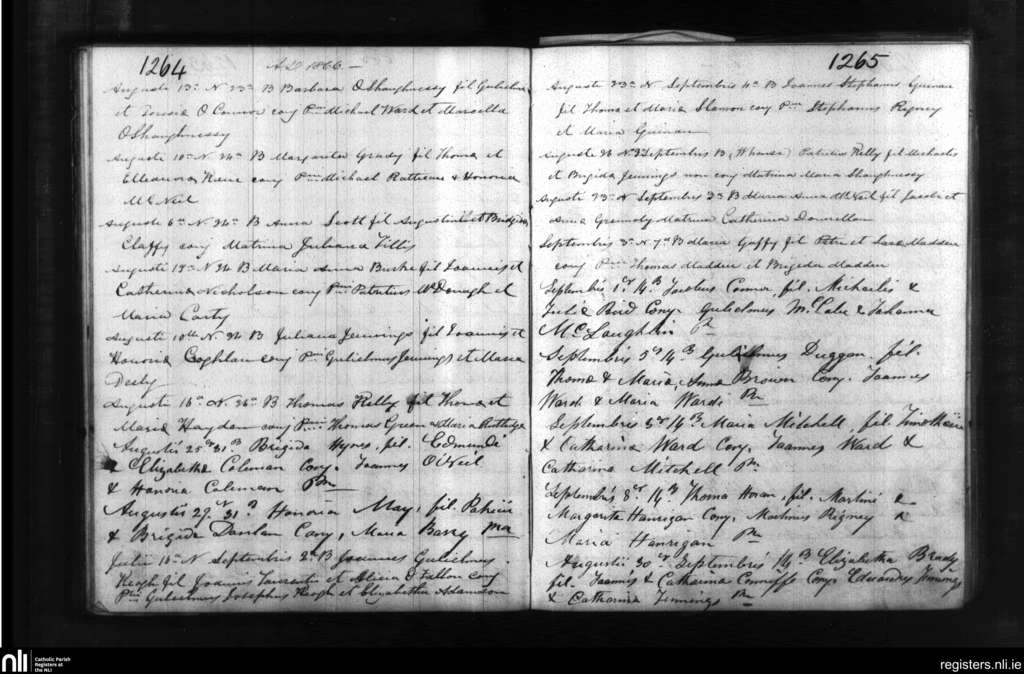 1264
AD 1866 —
Augusti 13a N 23a B Barbara O Shaughnessy fil Gulielmi
et Teresia O Connor conj Pni Michael Ward et Marcella
O Shaughnessy
Augusti 10a N. 24a B Margarita Grady fil Thoma et
Elleanora conj Pni Michael & Honoria
Mc Neil
Augusti 6a N. 26a B Anna Scott fil Augustini et Brigida
Claffy conj Matrina Juliana
Augusti 19a N 26 B Maria Anna Burke fil Joannis et
Catherina Nicholson conj Pni Patritius McDonagh et
Maria Carty
Augusti 10th N. 26 B Juliana Jennings fil Joannis et
Honoria Coghlan conj Pni Gulielmus Jennings et Maria
Deely
Augusti 16a N. 26a B Thomas Kelly fil Thoma et
Maria Haydon conj Pni Thomas Green Maria
Augustii 25 31 B Brigida Hynes, fil. Edmundi
& Elizabetha Coleman Conj. Joannes O'Neil
& Honoria Coleman Pni
Augustii 29. N 31 B Honoria May, fil. Patricii
& Brigida Conj, Maria Barry Ma
Julii 15a N Septembris 2a B Joannes Gulielmus
Keogh fil Joannis Laurentii et Alicia O Fallon conj
Pni Gulielmus Josephus Keogh et Elizabetha Adamson
1265
Augusti 23a N Septembris 4a B Joannes Stephanus Guinan
fil Thoma et Maria Slamon conj Pni Stephanus Rigney
et Maria Guinan
Augusti 26 N Septembris B Patritius Kelly fil Michaelis
et Brigida Jennings non conj Matrina Maria Shaughnessy
Augusti 23a N Septembris 3a B Maria Anna McNeil fil Jacobi et
Anna Matrina Catherina Donnellan
Septembris 3a N. 7a B Maria Gaffy fil Petri et Sara Madden
conj Pni Thomas Madden et Brigida Madden
Septembris 1 14 B Jacobus Connor, fil. Michaelis &
Julia Bird Conj. Gulielmus McCabe & Johanna
McLaughlin Pni
Septembris 5 14 B Gulielmus Duggan, fil.
Thoma & Maria Anna Brown Conj. Joannes
Ward & Maria Ward Pni
Septembris 5 14 B Maria Mitchell, fil. Timothii
& Catharina Ward Conj. Joannes Ward &
Catharina Mitchell Pni
Septembris 8 14 B Thoma Horan, fil. Martini &
Margarita Hanrigan Conj, Martinus Rigney &
Maria Hanrigan Pni
Augustii 30 Septembris 14 B Elizabetha Brady
fil. Joannis & Catharina Conj. Edwardus Jennings
& Catharina Jennings Pni
nli Catholic Parish
Registers at
the NLI
registers.nli.ie